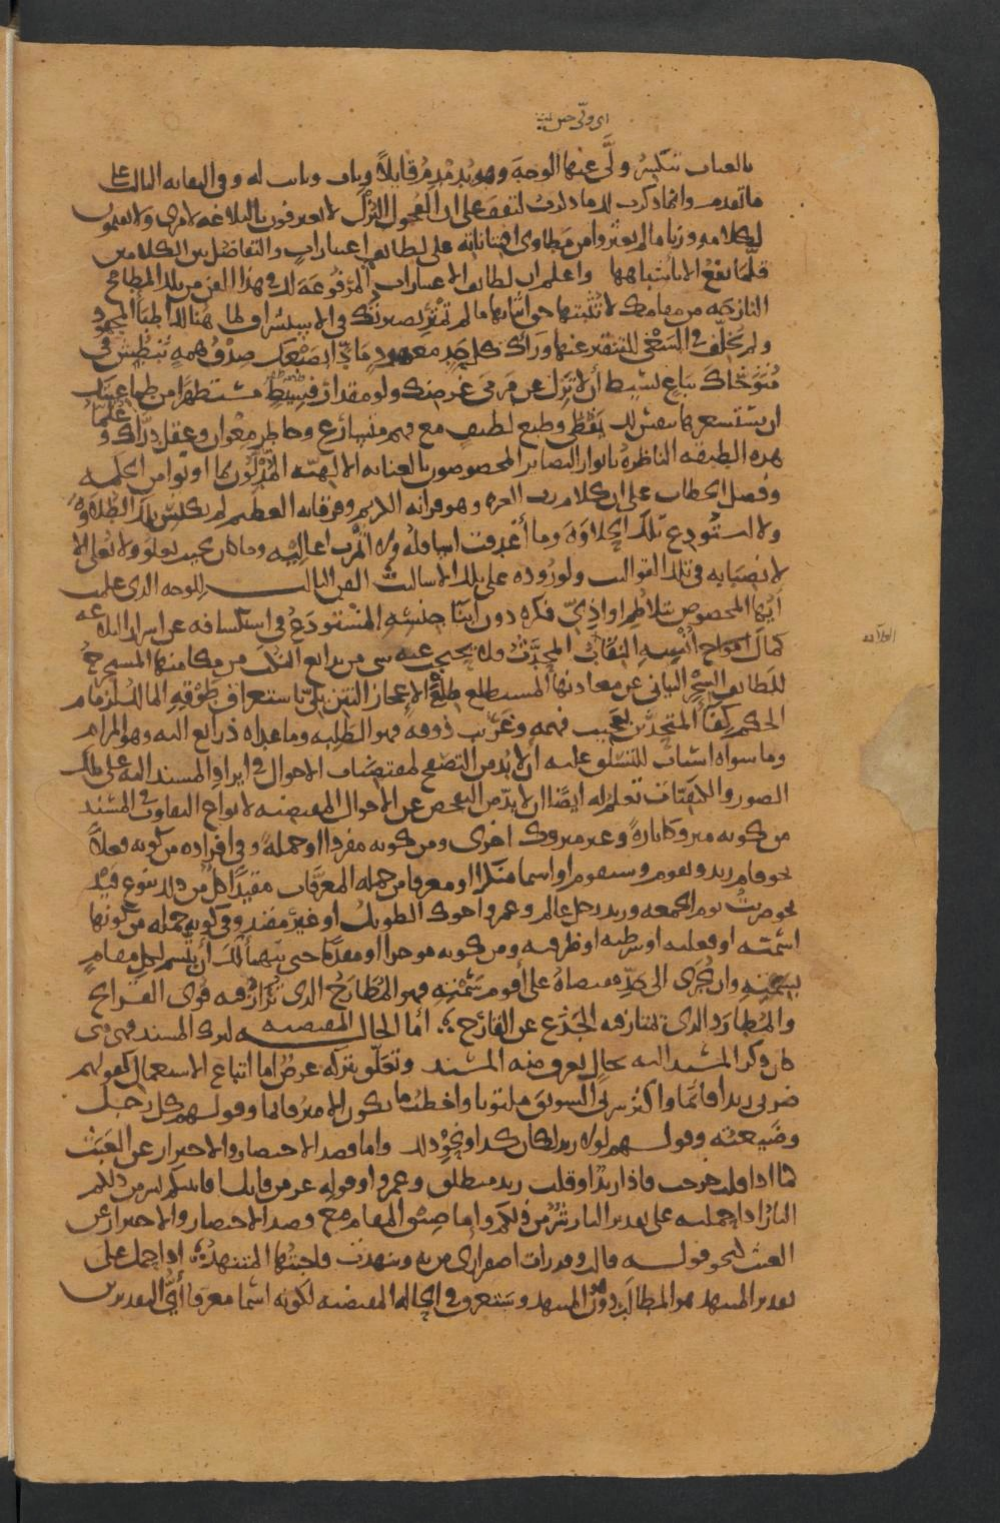 اى ولّى حين لقيه
بالعتاب تنكيره ولّى عنها الوجه وهو يدمدم قايلا وبات وباتت له وفي التفاته الثالث على
ما تقدم وانما ذكرت لك ما ذكرت لتقف على ان الفحول البزل لا يعترفون بالبلاغة لامرئ ولا يقيمون
لكلامه وزنا ما لم يعثروا من مطاوي افتناناته على لطائف اعتبارات والتفاضل بين الكلامين
قلّما يقع الا باشباهها واعلم ان لطائف الاعتبارات المرفوعة لك في هذا الفن من تلك المطامح
النازحة من مقامك لا تثبتها حق اثباتها ما لم تمتر بصيرتك في الاستشراف لما هنالك اطباء المجهود
ولم تختلف في السعي للتنقير عنها وراك كل حد معهود مادّا بضبعك صدق همة تبطش في
متوخاك بباع بسيط أن لا تزل عن مرمى غرضك ولو مقدار فسيط مستظهرا من طماعيتك
ان تستسعر كما ينفش لك بيقظ وطبع لطيف مع فهم متسارع وخاطر معوان وعقل دراك و
علماء
هذه الطبقة الناظرة بانوار البصاير المخصوصون بالعناية الالهية المدلّون بما اوتوا من الحكمة
وفصل الخطاب على ان كلام رب العزة وهو قرآنه الكريم وفرقانه العظيم لم يكتس تلك الطلاوة
ولا استودع تلك الحلاوة وما أغدقت اسافله ولا اثمرت اعاليه وما كان بحيث يعلو ولا يعلى الا
لانصبابه في تلك القوالب ولوروده على تلك الاساليب الفن الثالث للوجه الذي علمت
أيها المخصوص بتلاطم اواذيّ فكره دون أبنا جنسه المستودع في استكشافه عن اسرار البلاغة
كمال أمواج أنسه النقاب المحدّث ولا يحتجب عنه شي من بدايع النكت من مكامنها المستخرج
البلاغة
للطايف السحر البياني عن معادنها المستطلع طلع الاعجاز التنزيلي باستغراق طوقه المالك لزمام
الحكم كفا المتحدين بعجيب فهمه وغريب ذوقه فهو الطلبة وما عداه ذرائع اليه وهو المرام
وما سواه اسباب للتسلق عليه ان لا بد من التصفح لمقتضيات الاحوال في ايراد المسند اليه على تلك
الصور والكيفيات تعلم له ايضا ان لا بد من التفحص عن الاحوال المقتضية لانواع التفاوت في المسند
من كونه متروكا تارة وغير متروك اخرى ومن كونه مفردا او جملة وفي افراده من كونه فعلا
نحو قام زيد ويقوم وسيقوم او اسما منكرا او معرفا من جملة المعرفات مقيدا كل من ذلك بنوع قيد
نحو ضربت يوم الجمعة وزيد رجل عالم وعمرو اخوك الطويل او غير مقيد وفي كونه جملة من كونها
اسمية او فعلية او شرطية او ظرفية ومن كونه موخرا او مقدما حتى يتهيا لك أن يتسم لكل مقام
بسمته وان يجرى الى حد مقتضاه على أقوم سمته فهو المطارح الذي تزارف قوى القرائح
والمطارد الذي تمتاز فيه الجذع عن القارح ؛ أما الحال المقتضية لترك المسند فهي متى
كان ذكر المسند اليه بحال يعرف منه المسند وتعلّق بتركه غرض اما اتباع الاستعمال كقولهم
ضربي زيدا قائما واكثر شربي السويق ملتوتا واخطب ما يكون الامير قائما وقولهم كل رجل
وضيعته وقولهم لولا زيد لكان كذا ونحو ذلك واما قصد الاختصار والاحتراز عن العبث
كما اذا قلت خرجت فاذا زيد او قلت زيد منطلق وعمرو او قوله عز من قايل افانبئكم بشر من ذلكم
النار اذا حملته على تقدير النار شر من ذلكم واما ضيق المقام مع قصد الاختصار والاحتراز عن
العبث لنحو قوله قالت وقد رات اصفراري من به وتنهدت فاجبتها المتنهد ؛ اذا حمل على
تقدير المتنهد هو المطالب دون هو المتنهد وستعرف في الحالة المقتضية لكونه اسما معرفا أيّ التقديرين